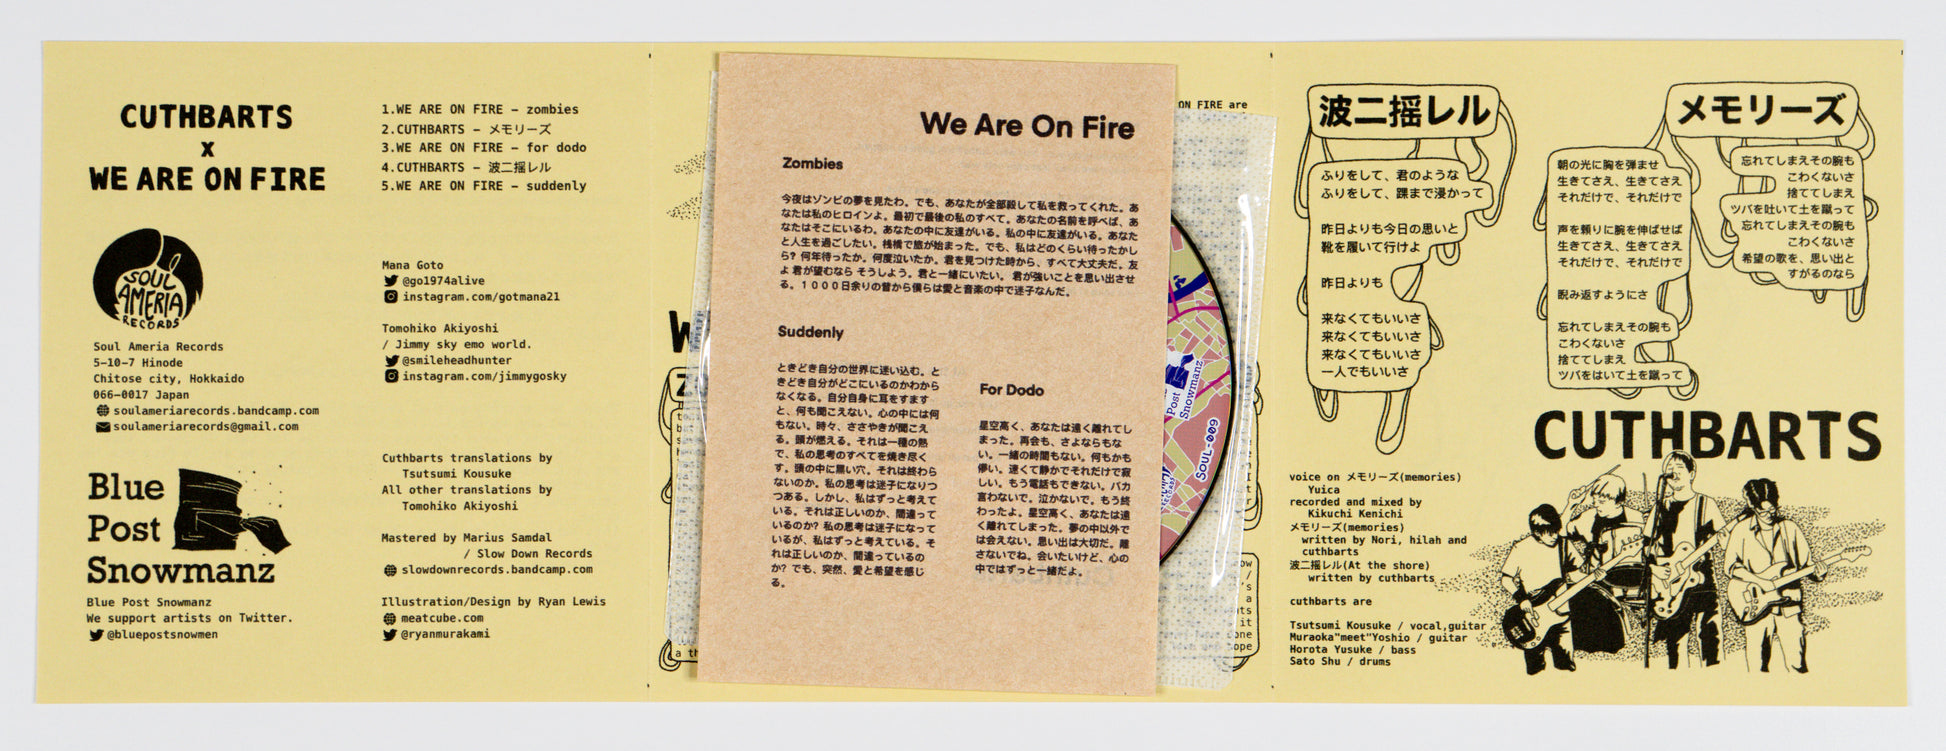 CUTHBARTS
x
WE ARE ON FIRE
1.WE ARE ON FIRE – zombies
2.CUTHBARTS – メモリーズ
3.WE ARE ON FIRE – for dodo
4.CUTHBARTS – 波二揺レル
5.WE ARE ON FIRE – suddenly
SOUL
AMERIA
RECORDS
Soul Ameria Records
5-10-7 Hinode
Chitose city, Hokkaido
066-0017 Japan
soulameriarecords.bandcamp.com
soulameriarecords@gmail.com
Blue
Post
Snowmanz
Blue Post Snowmanz
We support artists on Twitter.
@bluepostsnowmen
Mana Goto
@go1974alive
instagram.com/gotmana21
Tomohiko Akiyoshi
/ Jimmy sky emo world.
@smileheadhunter
instagram.com/jimmygosky
Cuthbarts translations by
Tsutsumi Kousuke
All other translations by
Tomohiko Akiyoshi
Mastered by Marius Samdal
/ Slow Down Records
slowdownrecords.bandcamp.com
Illustration/Design by Ryan Lewis
meatcube.com
@ryanmurakami
We Are On Fire
Zombies
今夜はゾンビの夢を見たわ。でも、あなたが全部殺して私を救ってくれた。あ
なたは私のヒロインよ。最初で最後の私のすべて。あなたの名前を呼べば、あ
なたはそこにいるわ。あなたの中に友達がいる。私の中に友達がいる。あなた
と人生を過ごしたい。桟橋で旅が始まった。でも、私はどのくらい待ったかし
ら? 何年待ったか。何度泣いたか。君を見つけた時から、すべて大丈夫だ。友
よ 君が望むなら そうしよう。君と一緒にいたい。 君が強いことを思い出させ
る。１０００日余りの昔から僕らは愛と音楽の中で迷子なんだ。
Suddenly
ときどき自分の世界に迷い込む。と
きどき自分がどこにいるのかわから
なくなる。自分自身に耳をすます
と、何も聞こえない。心の中には何
もない。時々、ささやきが聞こえ
る。頭が燃える。それは一種の熱
で、私の思考のすべてを焼き尽く
す。頭の中に黒い穴。それは終わら
ないのか。私の思考は迷子になりつ
つある。しかし、私はずっと考えて
いる。それは正しいのか、間違って
いるのか? 私の思考は迷子になって
いるが、私はずっと考えている。そ
れは正しいのか、間違っているの
か? でも、突然、愛と希望を感じ
る。
For Dodo
星空高く、あなたは遠く離れてし
まった。再会も、さよならもな
い。一緒の時間もない。何もかも
儚い。速くて静かでそれだけで寂
しい。もう電話もできない。バカ
言わないで。泣かないで。もう終
わったよ。星空高く、あなたは遠
く離れてしまった。夢の中以外で
は会えない。思い出は大切だ。離
さないでね。会いたいけど、心の
中ではずっと一緒だよ。
ON FIRE are
Post
Snowmanz
SOUL-009
波二揺レル
ふりをして、君のような
ふりをして、踝まで浸かって
昨日よりも今日の思いと
靴を履いて行けよ
昨日よりも
来なくてもいいさ
来なくてもいいさ
来なくてもいいさ
一人でもいいさ
メモリーズ
朝の光に胸を弾ませ
生きてさえ、生きてさえ
それだけで、それだけで
声を頼りに腕を伸ばせば
生きてさえ、生きてさえ
それだけで、それだけで
睨み返すようにさ
忘れてしまえその腕も
こわくないさ
捨ててしまえ
ツバをはいて土を蹴って
忘れてしまえその腕も
こわくないさ
捨ててしまえ
ツバを吐いて土を蹴って
忘れてしまえその腕も
こわくないさ
希望の歌を、思い出と
すがるのなら
CUTHBARTS
voice on メモリーズ(memories)
Yuica
recorded and mixed by
Kikuchi Kenichi
メモリーズ(memories)
written by Nori, hilah and
cuthbarts
波二揺レル(At the shore)
written by cuthbarts
cuthbarts are
Tsutsumi Kousuke / vocal,guitar
Muraoka"meet"Yoshio / guitar
Horota Yusuke / bass
Sato Shu / drums